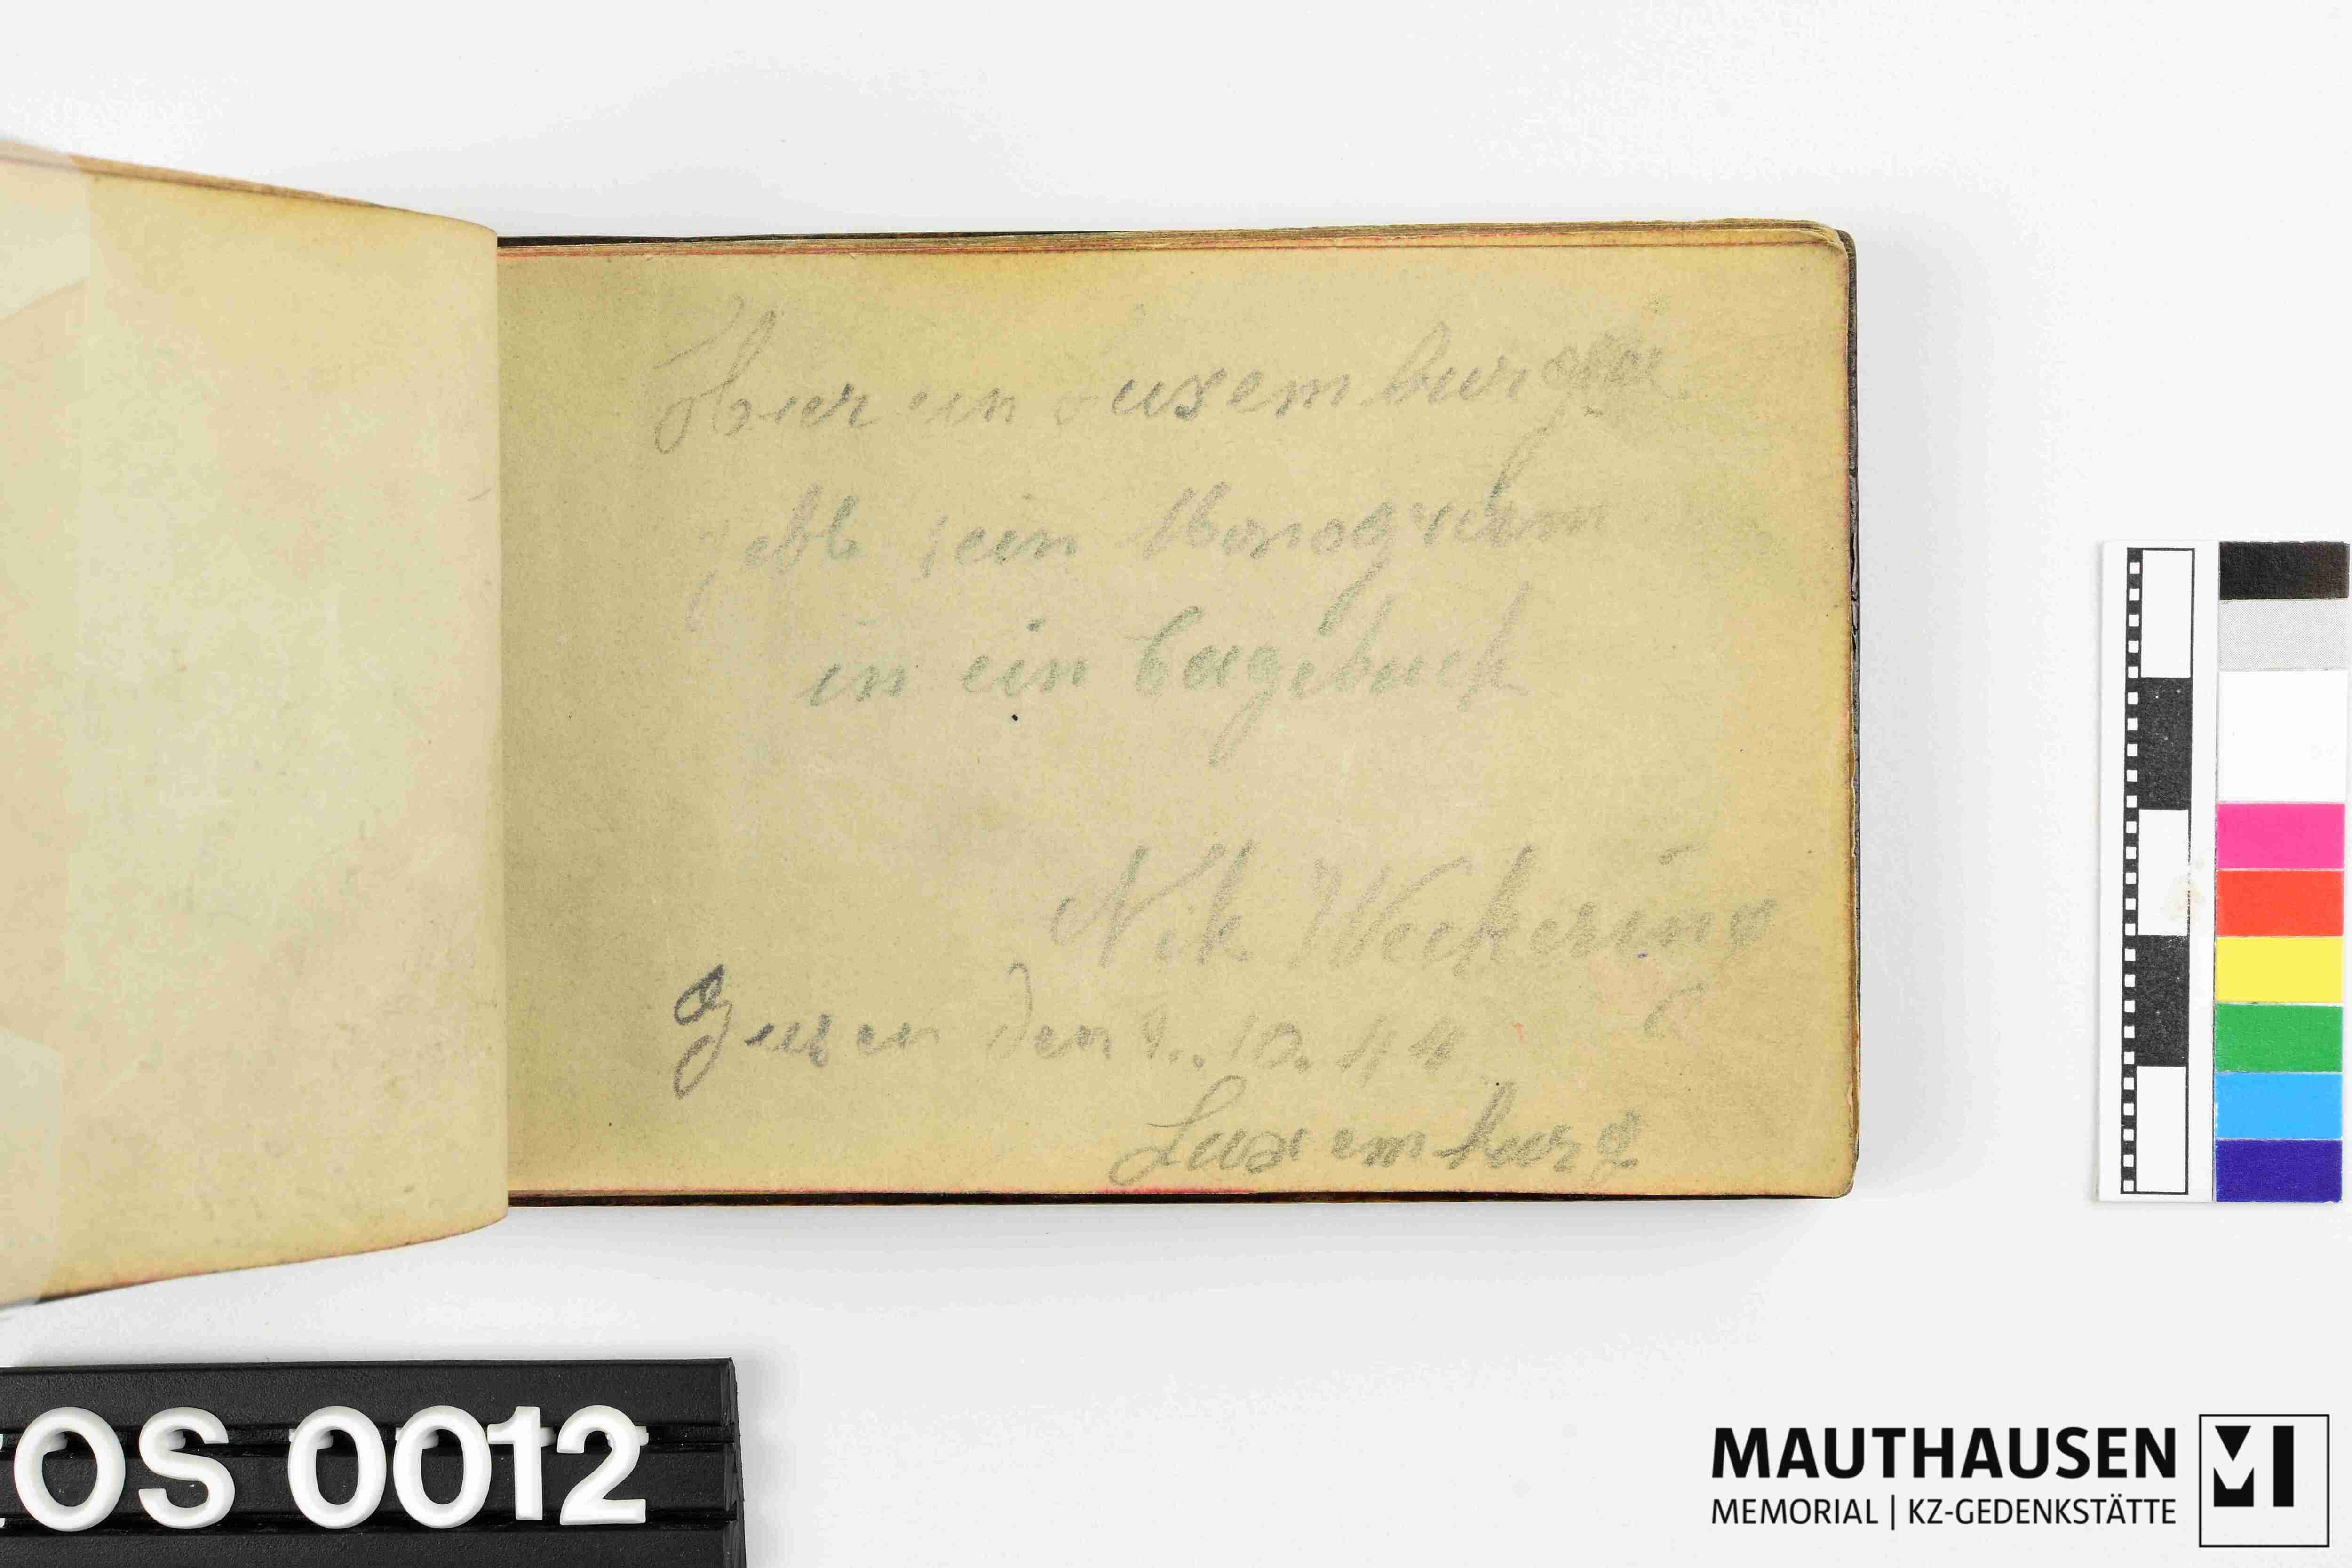 Hier ein Luxemburger
gebb sein Monogram
in ein Tagebuch
Nik Weckering
Gusen den 9.. 10. 44
Luxemburg
OS 0012
MAUTHAUSEN
MEMORIAL | KZ-GEDENKSTÄTTE